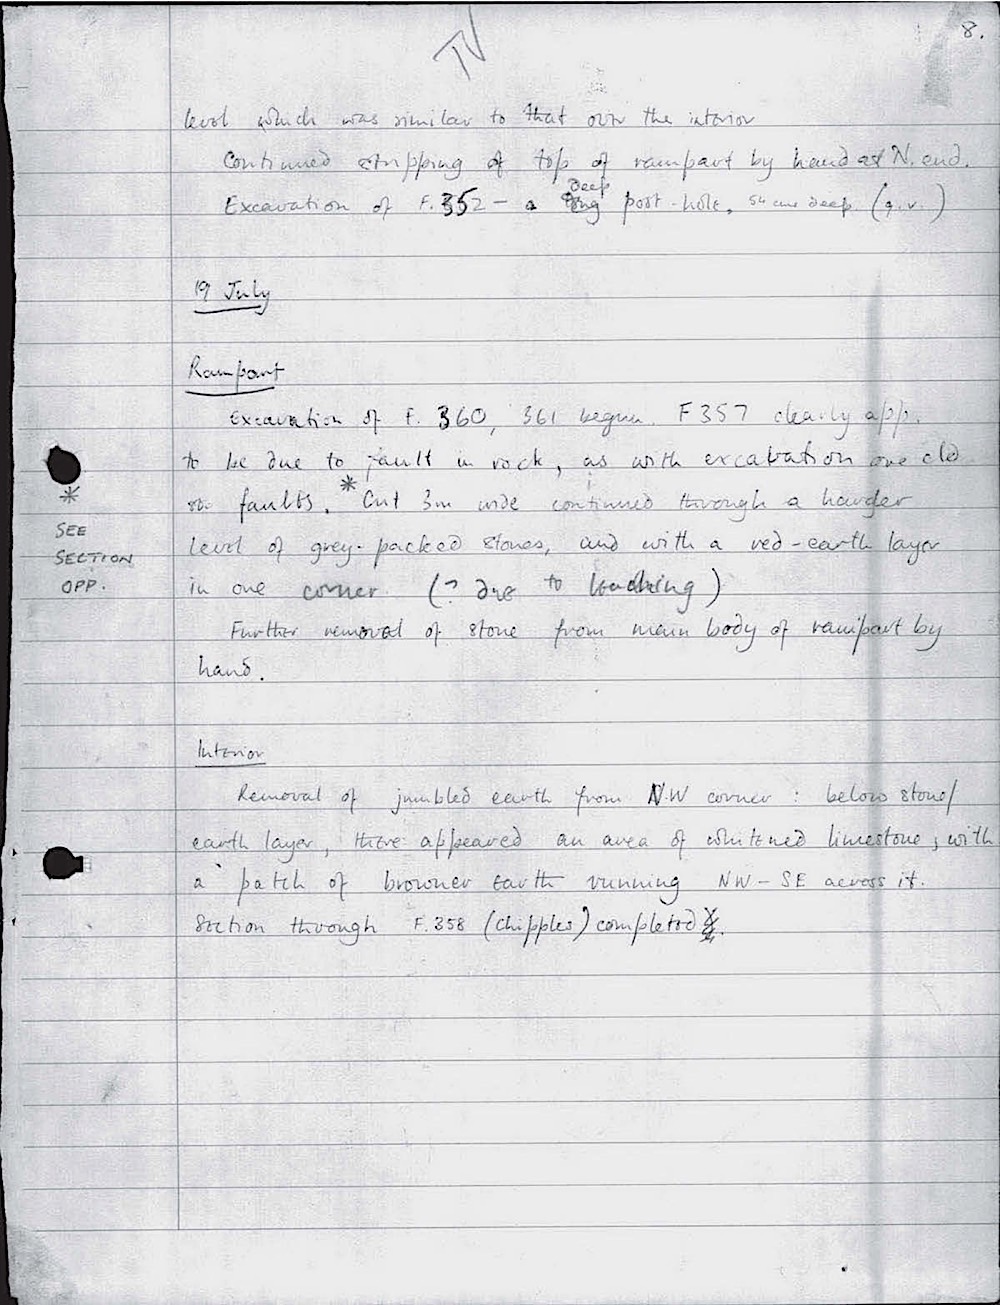 IV
8.
level which was similar to that over the interior
Continued stripping of top of rampart by hand at N. end.
deep
Excavation of F. 352 - a post-hole, 54 cms deep (q.v.)
19 July
Rampart
Excavation of F. 360, 361 begun. F357 clearly app.
to be due to fault in rock, as with excabation one
faults. * Cut 3m wide continued through a harder
level of grey-packed stones, and with a red-earth layer
in one corner (? due to leaching)
Further removal of stone from main body of rampart by
hand.
*
SEE
SECTION
OPP.
Interior
Removal of jumbled earth from NW corner : below stone/
earth layer, there appeared an area of whitened limestone, with
a patch of browner earth running NW - SE across it.
Section through F. 358 (chipples) completed